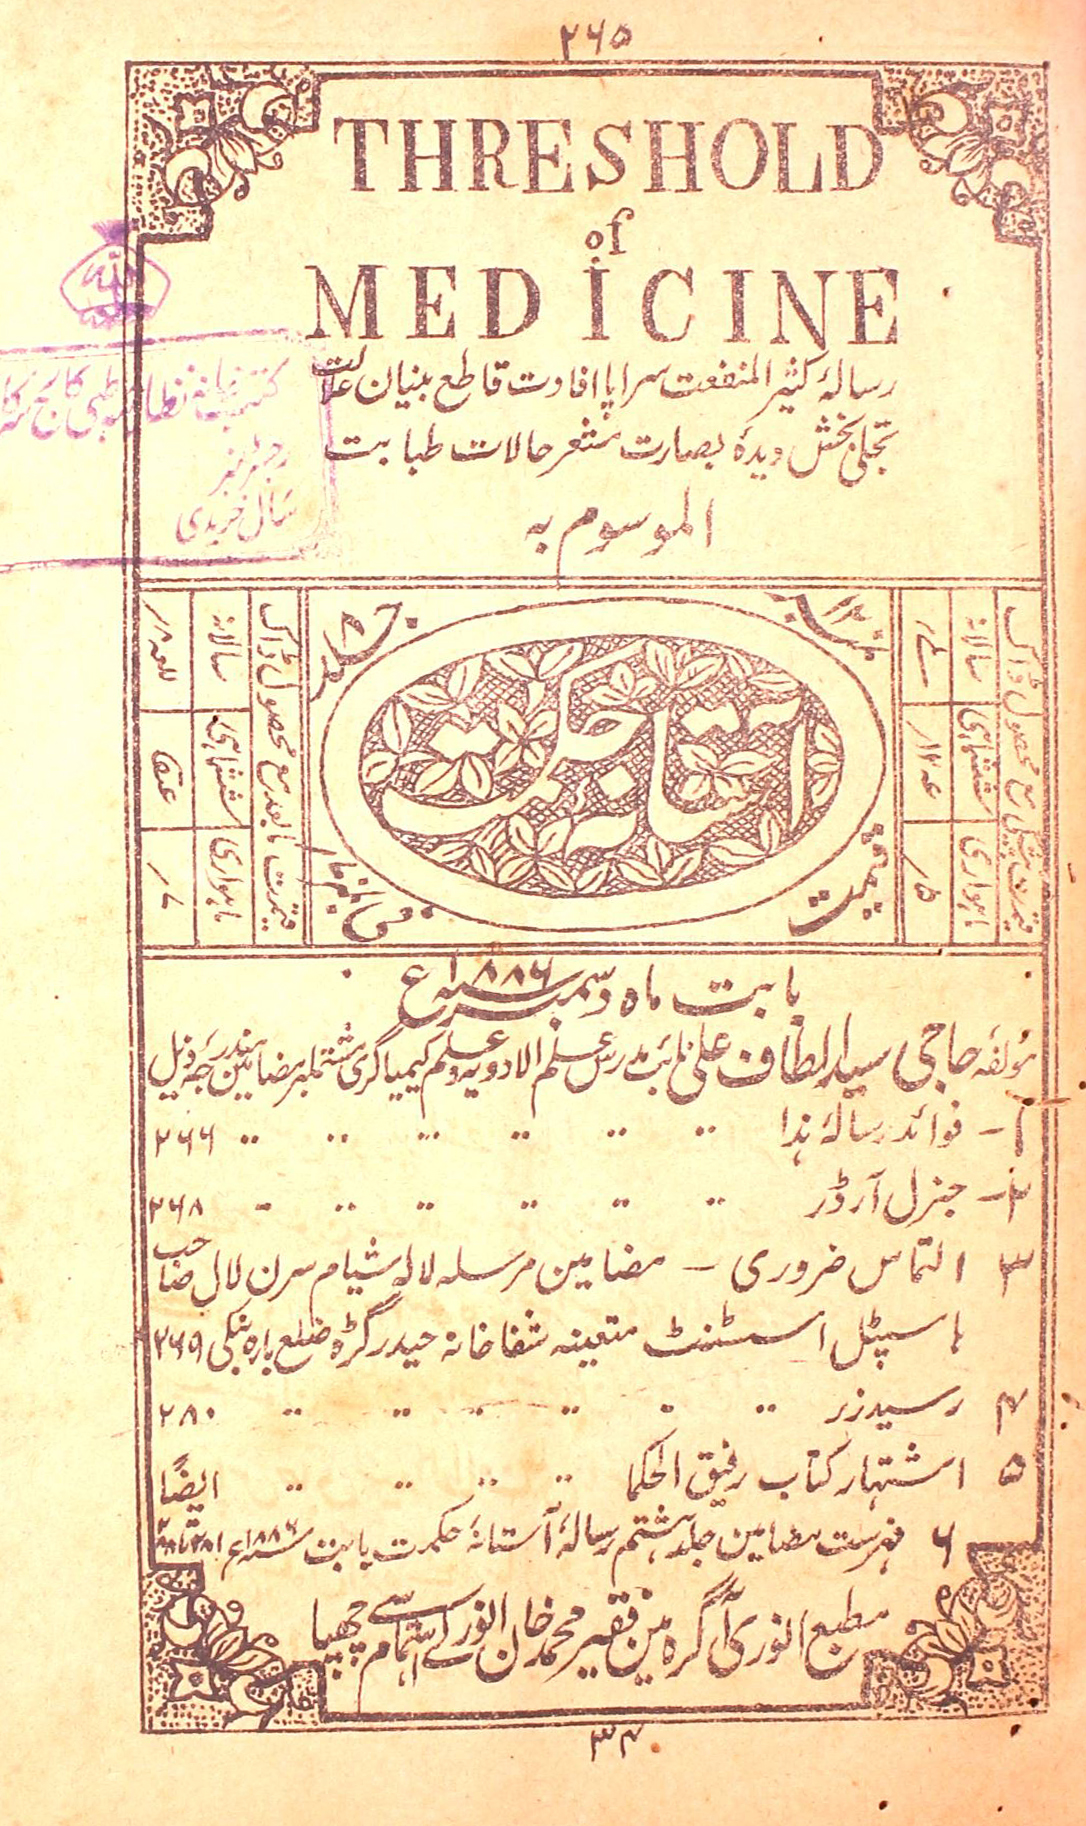 ۲۶۵
THRESHOLD
of
MEDICINE
رسالۂ کثیر المنفعت سراپا افادت قاطع بنیان علالت
تجلی بخش دیدۂ بصارت مشعر حالات طبابت
الموسوم بہ
کتب خانہ نظامیہ طبی کالج
رجسٹر نمبر
سال خریدی
نمبر ۱۲
جلد ۸
آستانہ حکمت
قیمت
قیمت پیشگی مع محصول ڈاک
سالانہ
ششماہی
ماہواری ۵ر
قیمت مابعد مع محصول ڈاک
سالانہ
ششماہی
ماہواری ۷ر
بابت ماہ دسمبر سنہ ۱۸۸۶ع
مؤلفہ حاجی سید الطاف علی نائب مدرس علم الادویہ و علم کیمیاگری مشتملبر مضامین مندرجہ ذیل
۱ - فوائد رسالۂ ہذا ۲۶۶
۲ - جنرل آرڈر ۲۶۸
۳ التماس ضروری - مضامین مرسلہ لالہ شیام سرن لال صاحب
ہاسپٹل اسسٹنٹ متعینہ شفاخانہ حیدرگڑہ ضلع بارہ بنکی ۲۶۹
۴ رسید زر ۲۸۰
۵ اشتہار کتاب رفیق الحکما ایضاً
۶ فہرست مضامین جلد ہشتم رسالۂ آستانۂ حکمت بابت سنہ ۱۸۸۶ع
مطبع انوری آگرہ مین فقیر محمد خان انور کے اہتمام سے چھپا
۳۴